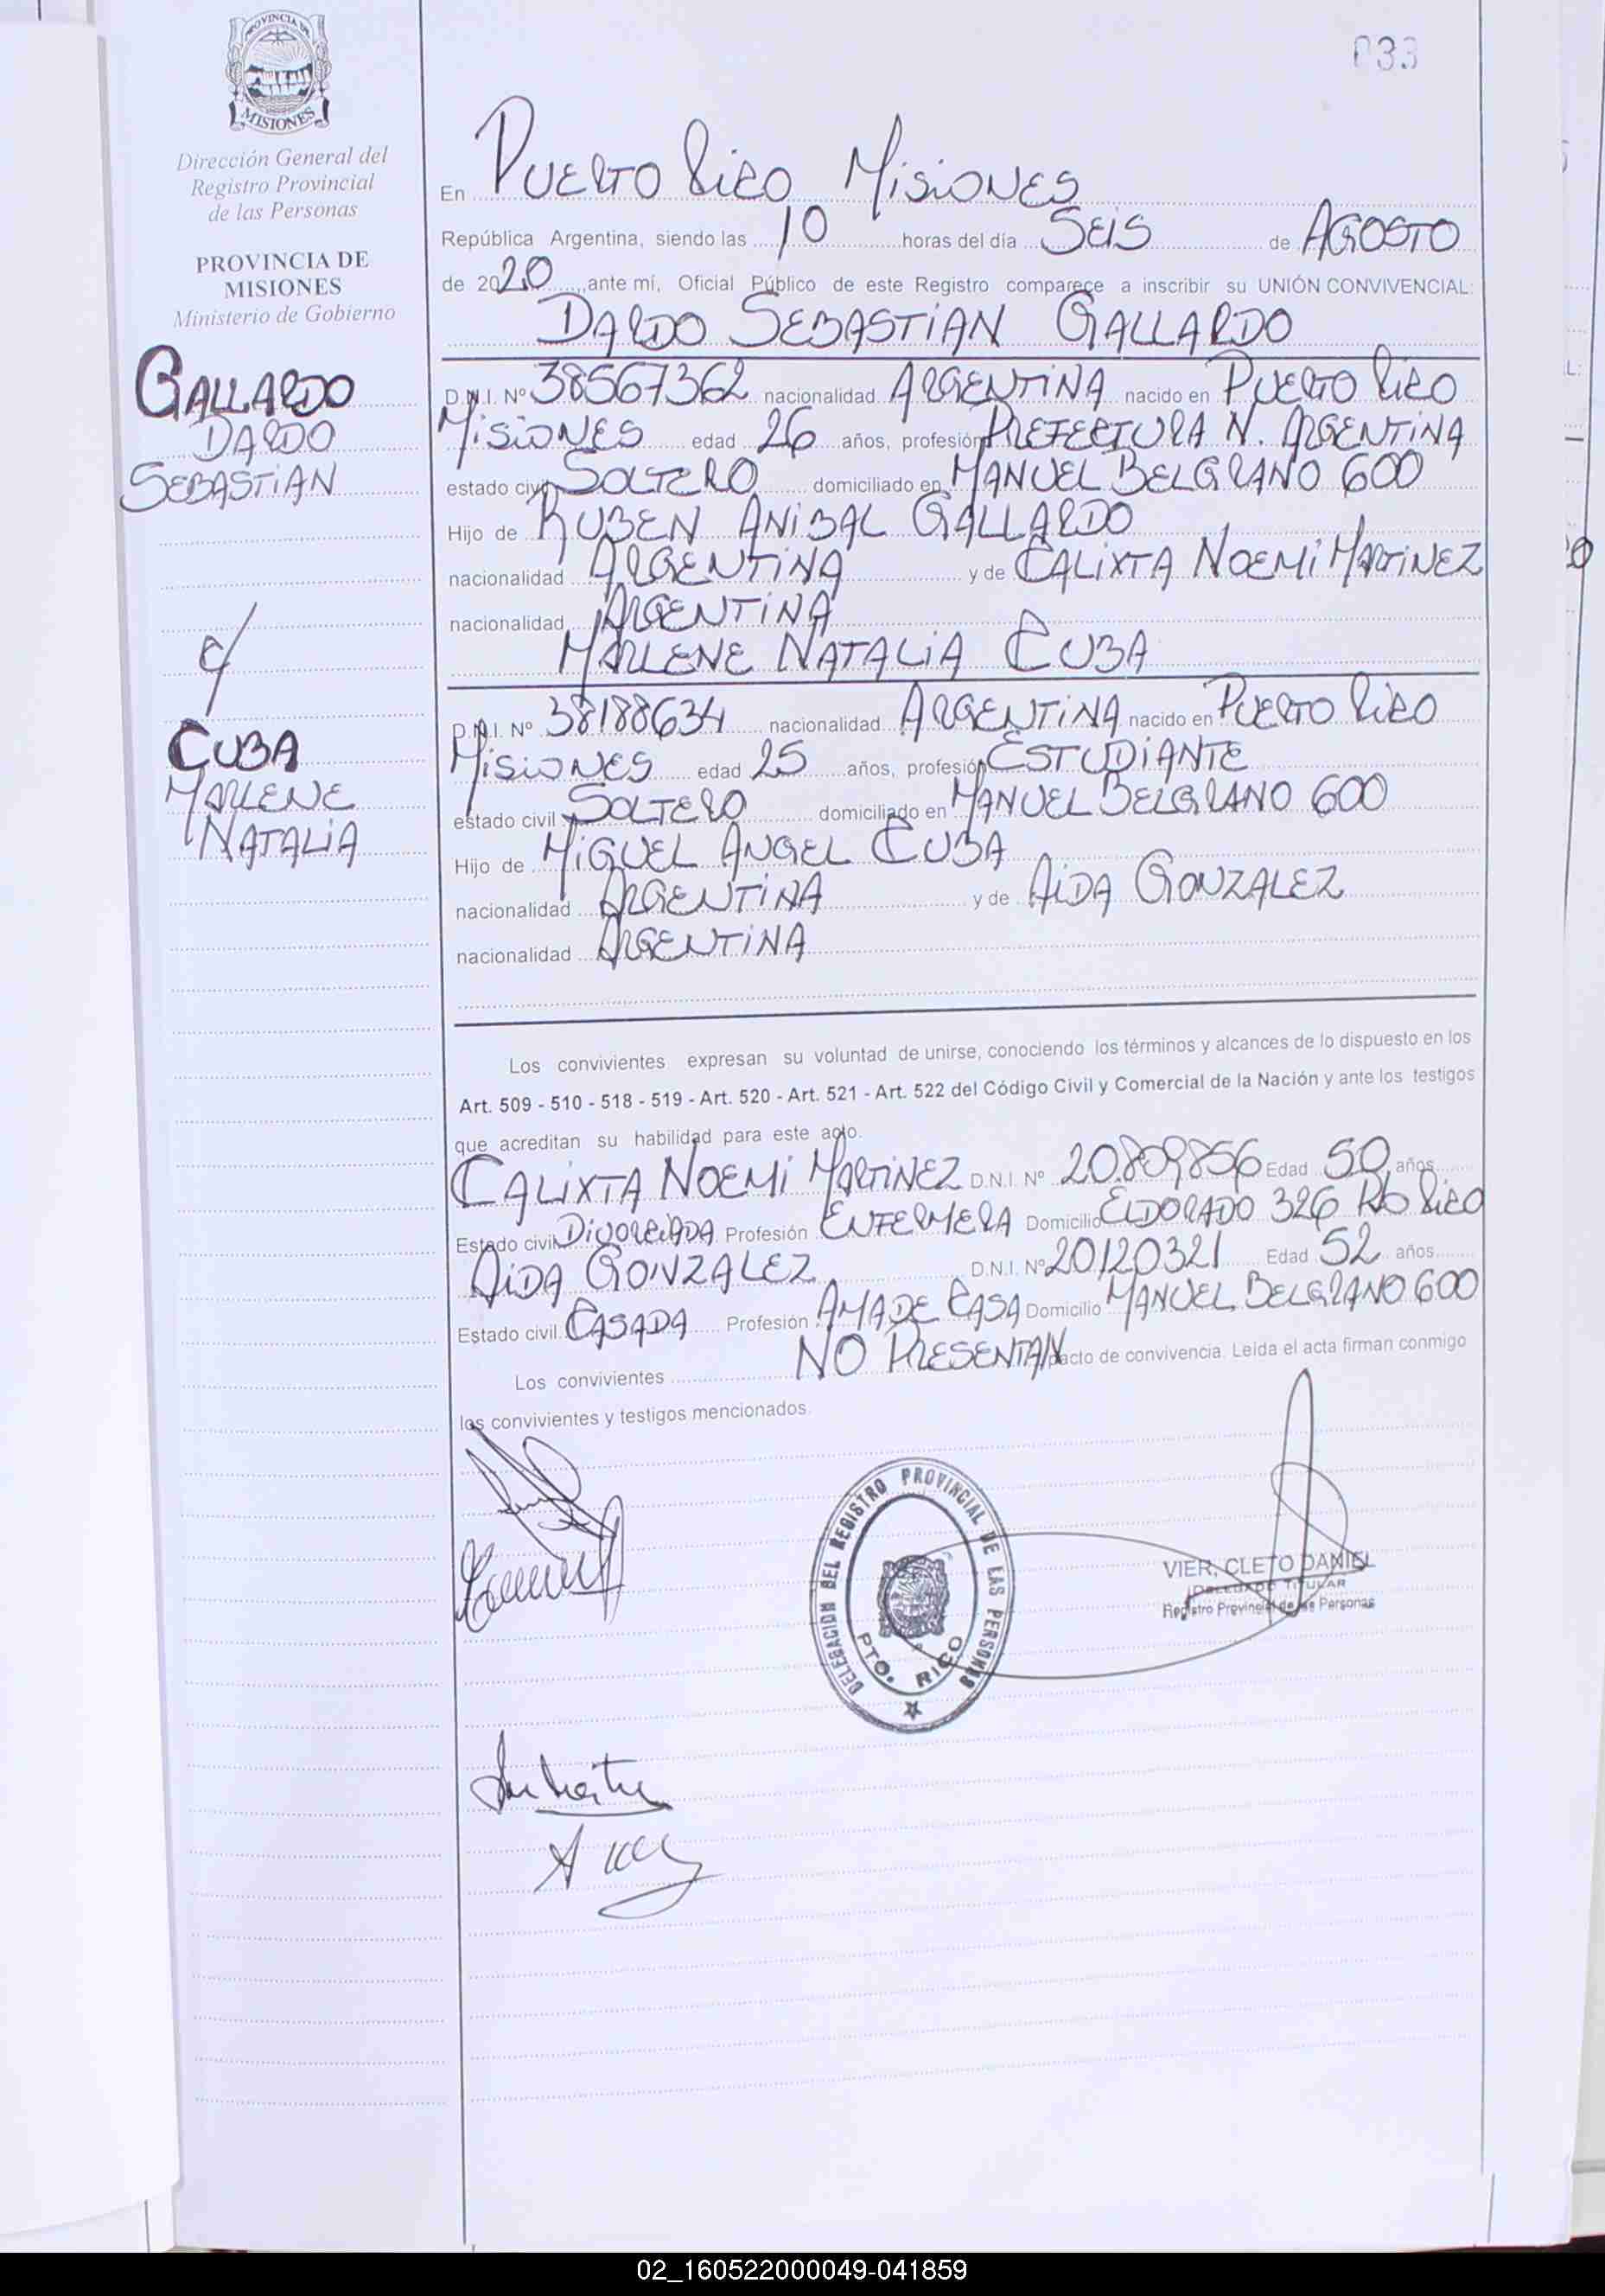 033
PROVINCIA DE
MISIONES
Dirección General del
Registro Provincial
de las Personas
PROVINCIA DE
MISIONES
Ministerio de Gobierno
GALLARDO
DARDO
SEBASTIAN
c/
CUBA
MARLENE
NATALIA
En PUERTO RICO MISIONES
República Argentina, siendo las 10 horas del día SEIS de AGOSTO
de 2020, ante mí, Oficial Público de este Registro comparece a inscribir su UNIÓN CONVIVENCIAL:
DARDO SEBASTIAN GALLARDO
D.N.I. Nº 38567362 nacionalidad ARGENTINA nacido en PUERTO RICO
MISIONES edad 26 años, profesión PREFECTURA N. ARGENTINA
estado civil SOLTERO domiciliado en MANUEL BELGRANO 600
Hijo de RUBEN ANIBAL GALLARDO
nacionalidad ARGENTINA y de CALIXTA NOEMI MARTINEZ
nacionalidad ARGENTINA
MARLENE NATALIA CUBA
D.N.I. Nº 38188634 nacionalidad ARGENTINA nacido en PUERTO RICO
MISIONES edad 25 años, profesión ESTUDIANTE
estado civil SOLTERO domiciliado en MANUEL BELGRANO 600
Hijo de MIGUEL ANGEL CUBA
nacionalidad ARGENTINA y de AIDA GONZALEZ
nacionalidad ARGENTINA
Los convivientes expresan su voluntad de unirse, conociendo los términos y alcances de lo dispuesto en los
Art. 509 - 510 - 518 - 519 - Art. 520 - Art. 521 - Art. 522 del Código Civil y Comercial de la Nación y ante los testigos
que acreditan su habilidad para este acto.
CALIXTA NOEMI MARTINEZ D.N.I. Nº 20.809856 Edad 50 años
Estado civil DIVORCIADA Profesión ENFERMERA Domicilio ELDORADO 326 Pto RICO
AIDA GONZALEZ D.N.I. Nº 20120321 Edad 52 años
Estado civil CASADA Profesión AMA DE CASA Domicilio MANUEL BELGRANO 600
Los convivientes NO PRESENTAN pacto de convivencia. Leída el acta firman conmigo
los convivientes y testigos mencionados.
DELEGACION DEL REGISTRO PROVINCIAL DE LAS PERSONAS
PTO. RICO
VIER, CLETO DANIEL
DELEGADO TITULAR
Registro Provincial de las Personas
02_160522000049-041859